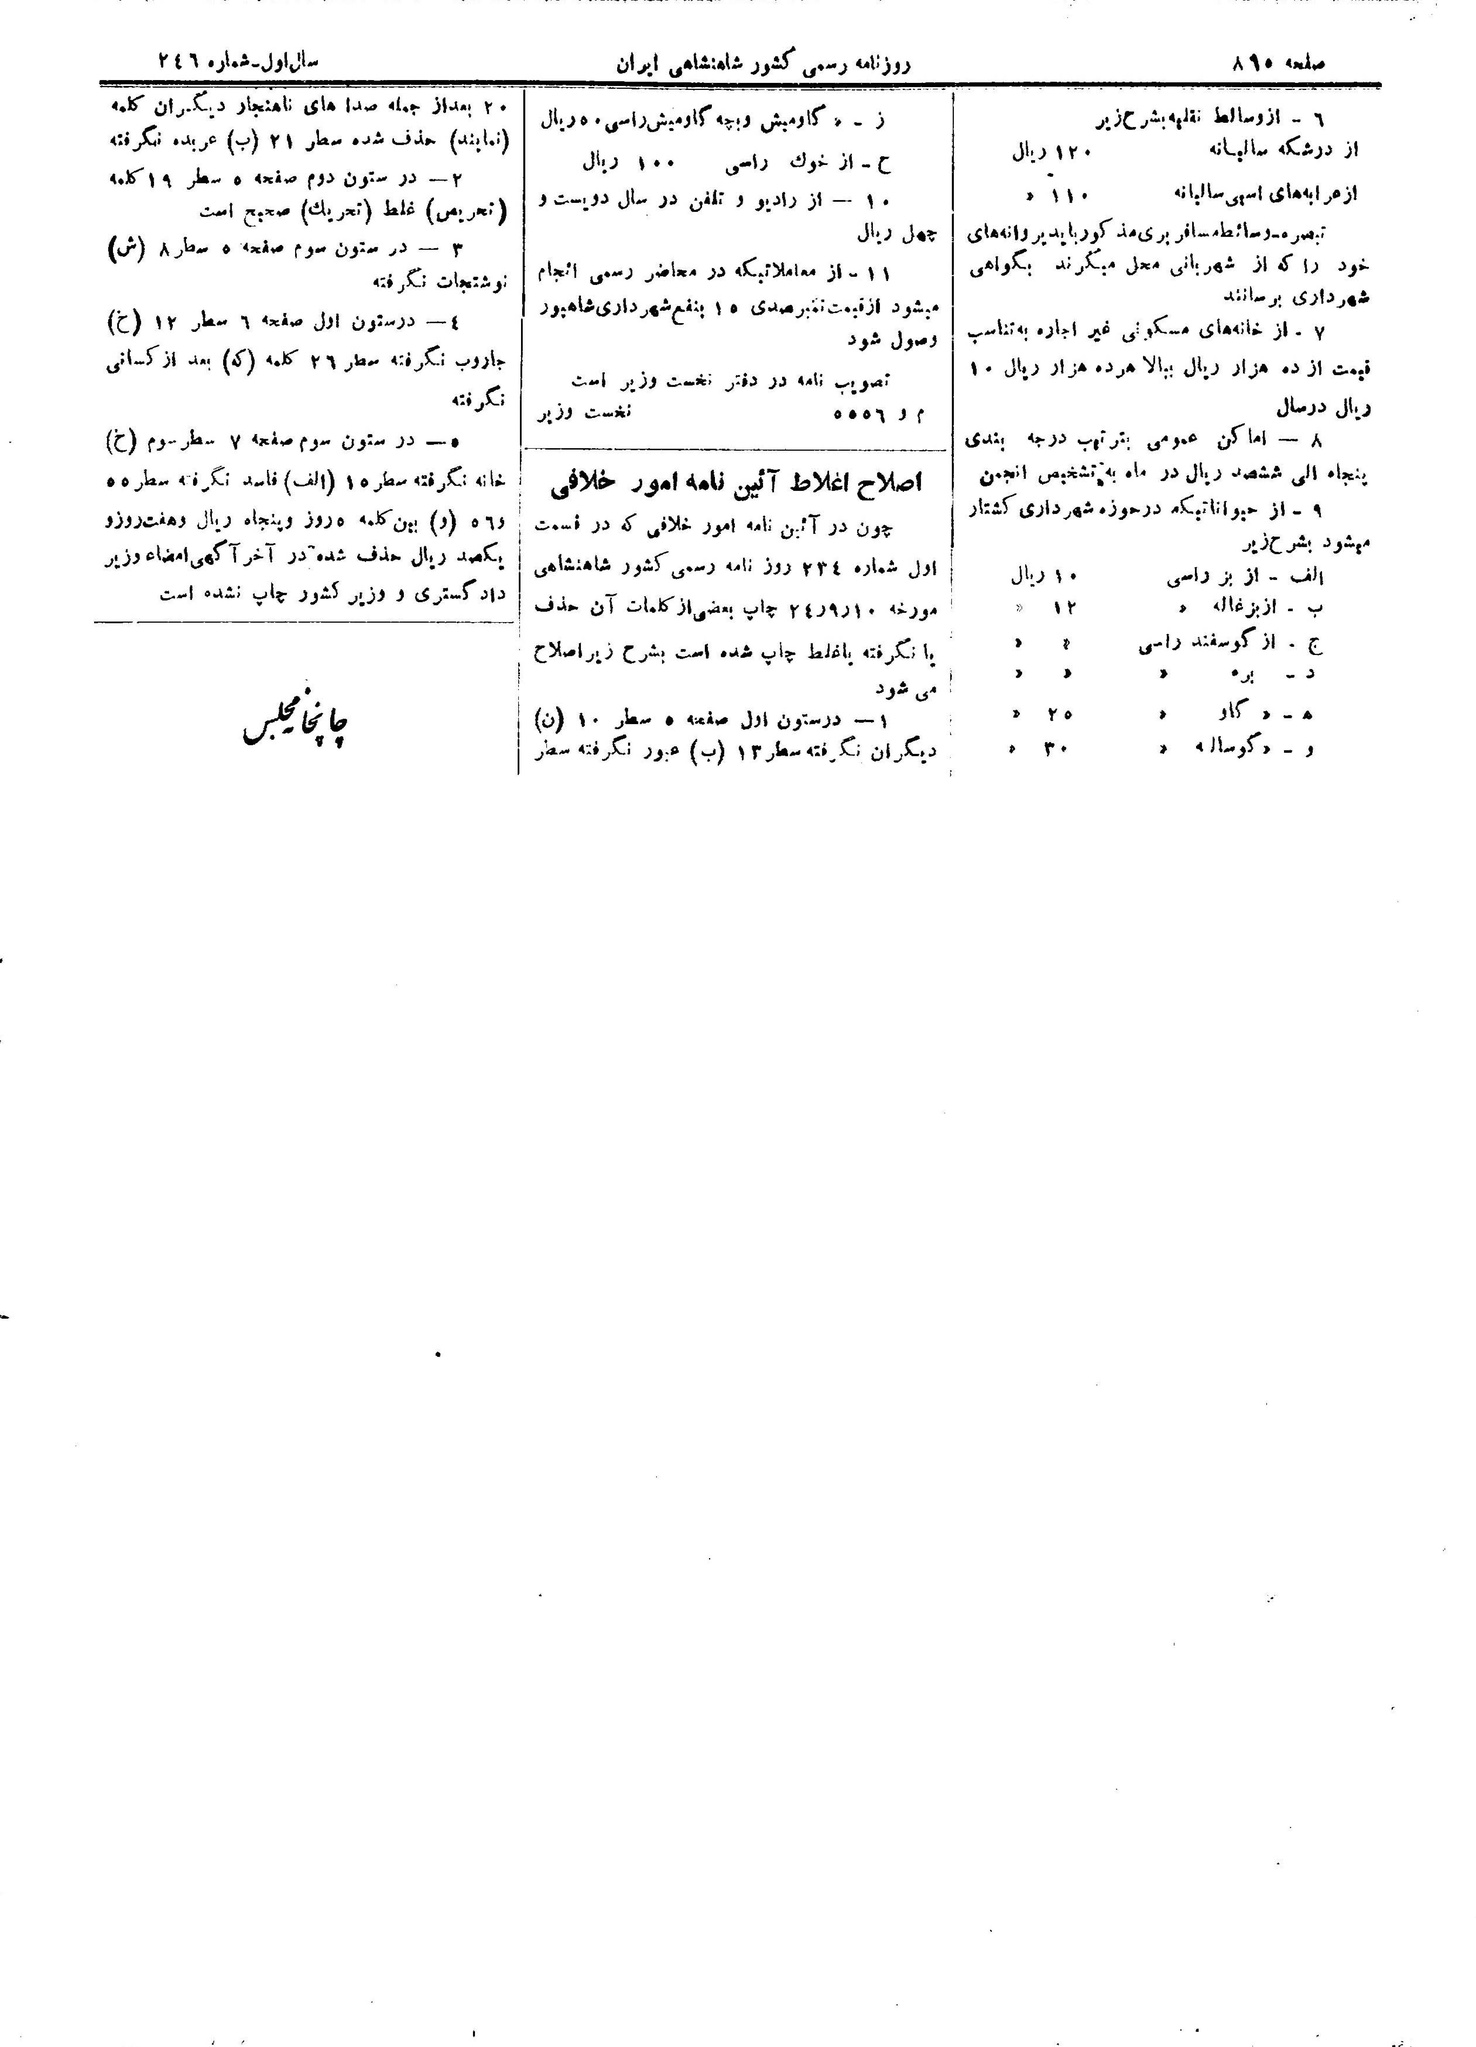 صفحه ۸۹۵
روزنامه رسمی کشور شاهنشاهی ایران
سال اول-شماره ۲٤٦
٦ - از وسائط نقلیه بشرح زیر
از درشکه سالیانه ۱۲۰ ریال
از عرابه‌های اسپی سالیانه ۱۱۰ »
تبصره-وسائط مسافر بری مذکور باید پروانه‌های
خود را که از شهربانی محل میگرند بگواهی
شهرداری برسانند
۷ - از خانه‌های مسکونی غیر اجاره به تناسب
قیمت از ده هزار ریال ببالا هر ده هزار ریال ۱۰
ریال در سال
۸ — اماکن عمومی بترتیب درجه بندی
پنجاه الی ششصد ریال در ماه به تشخیص انجمن
۹ - از حیواناتیکه در حوزه شهرداری کشتار
میشود بشرح زیر
الف - از بز راسی ۱۰ ریال
ب - از بزغاله » ۱۲ »
ج - از گوسفند راسی » »
د - بره » » »
ه - » گاو » ۲۵ »
و - » گوساله » ۳۰ »
ز - » گاومیش و بچه گاومیش راسی ۵۰ ریال
ح - از خوك راسی ۱۰۰ ریال
۱۰ — از رادیو و تلفن در سال دویست و
چهل ریال
۱۱ - از معاملاتیکه در محاضر رسمی انجام
میشود از قیمت تمبر صدی ۱۵ بنفع شهرداری شاهپور
وصول شود
تصویب نامه در دفتر نخست وزیر است
م و ۵۵۵٦ نخست وزیر
اصلاح اغلاط آئین نامه امور خلافی
چون در آئین نامه امور خلافی که در قسمت
اول شماره ۲۳٤ روز نامه رسمی کشور شاهنشاهی
مورخه ۲٤/۹/۱۰ چاپ بعضی از کلمات آن حذف
یا نگرفته یا غلط چاپ شده است بشرح زیر اصلاح
می شود
۱— در ستون اول صفحه ۵ سطر ۱۰ (ن)
دیگران نگرفته سطر ۱۳ (ب) عبور نگرفته سطر
۲۰ بعد از جمله صدا های ناهنجار دیگران کلمه
(نمایند) حذف شده سطر ۲۱ (ب) عربده نگرفته
۲— در ستون دوم صفحه ۵ سطر ۱۹ کلمه
(تحریص) غلط (تحریك) صحیح است
۳ — در ستون سوم صفحه ۵ سطر ۸ (ش)
نوشتجات نگرفته
٤— در ستون اول صفحه ٦ سطر ۱۲ (خ)
جاروب نگرفته سطر ۲٦ کلمه (که) بعد از کسانی
نگرفته
۵— در ستون سوم صفحه ۷ سطر سوم (خ)
خانه نگرفته سطر ۱۵ (الف) فاسد نگرفته سطر ۵۵
و ۵٦ (و) بین کلمه ۵ روز و پنجاه ریال و هفت روز و
یکصد ریال حذف شده در آخر آگهی امضاء وزیر
دادگستری و وزیر کشور چاپ نشده است
چاپخانه مجلس